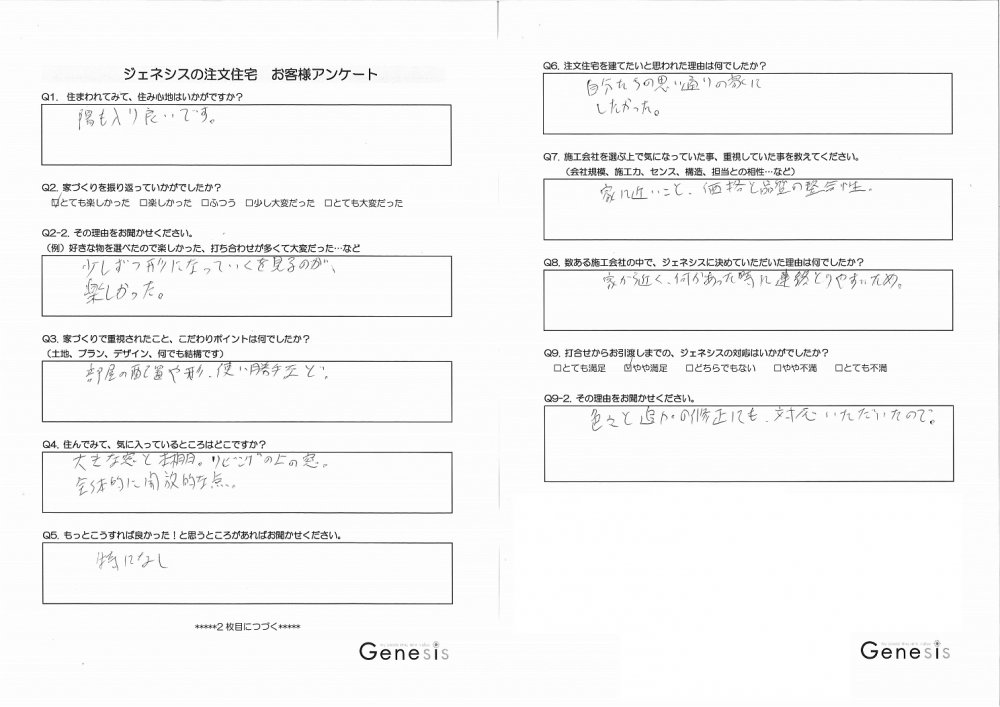 ジェネシスの注文住宅　お客様アンケート
Q1. 住まわれてみて、住み心地はいかがですか？
陽も入り良いです。
Q2. 家づくりを振り返っていかがでしたか？
☑とても楽しかった　□楽しかった　□ふつう　□少し大変だった　□とても大変だった
Q2-2. その理由をお聞かせください。
（例）好きな物を選べたので楽しかった、打ち合わせが多くて大変だった…など
少しずつ形になっていくを見るのが、
楽しかった。
Q3. 家づくりで重視されたこと、こだわりポイントは何でしたか？
（土地、プラン、デザイン、何でも結構です）
部屋の配置や形、使い勝手など。
Q4. 住んでみて、気に入っているところはどこですか？
大きな窓と本棚。リビングの上の窓。
全体的に開放的な点。
Q5. もっとこうすれば良かった！と思うところがあればお聞かせください。
特になし
*****2枚目につづく*****
Genesis
Q6. 注文住宅を建てたいと思われた理由は何でしたか？
自分たちの思い通りの家に
したかった。
Q7. 施工会社を選ぶ上で気になっていた事、重視していた事を教えてください。
（会社規模、施工力、センス、構造、担当との相性…など）
家に近いこと、価格と品質の整合性。
Q8. 数ある施工会社の中で、ジェネシスに決めていただいた理由は何でしたか？
家が近く、何かあった時に連絡とりやすいため。
Q9. 打合せからお引渡しまでの、ジェネシスの対応はいかがでしたか？
□とても満足　☑やや満足　□どちらでもない　□やや不満　□とても不満
Q9-2. その理由をお聞かせください。
色々と追加の修正にも、対応いただいたので。
Genesis